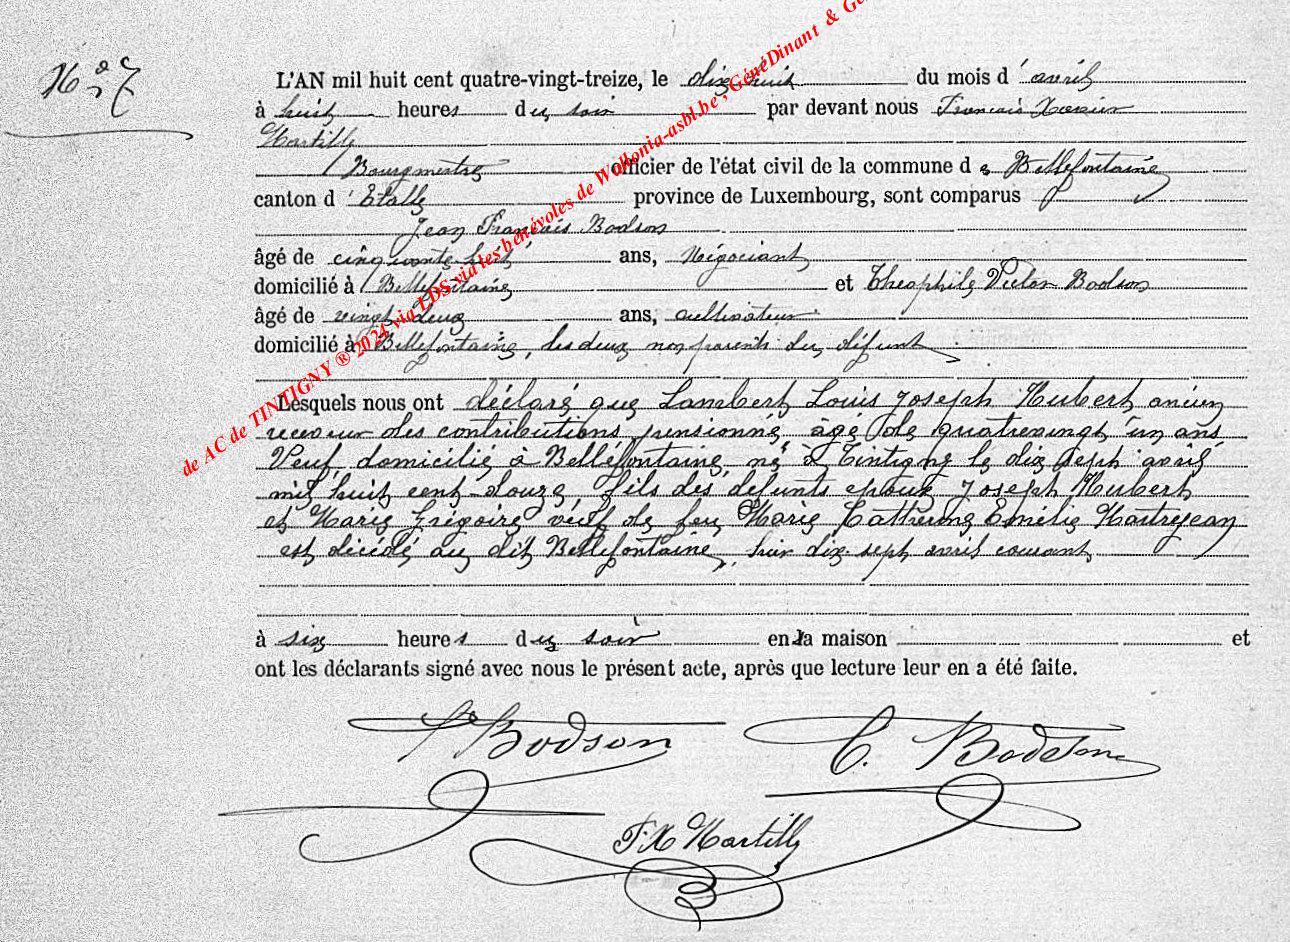 N° 7
L'AN mil huit cent quatre-vingt-treize, le dix huit du mois d'avril
à huit heures du soir par devant nous François Xavier
Martilly
Bourgmestre officier de l'état civil de la commune de Bellefontaine
canton d'Etalle province de Luxembourg, sont comparus
Jean François Bodson
âgé de cinquante huit ans, Négociant
domicilié à Bellefontaine et Théophile Victor Bodson
âgé de vingt deux ans, cultivateur
domicilié à Bellefontaine, les deux non parents du défunt
Lesquels nous ont déclaré que Lambert Louis Joseph Hubert, ancien
receveur des contributions, pensionné, âgé de quatrevingt un ans,
Veuf, domicilié à Bellefontaine, né à Tintigny le dix sept avril
mil huit cent douze, fils des défunts époux Joseph Hubert
et Marie Grégoire veuf de feu Marie Catherine Emélie Maitrejean
est décédé au dit Bellefontaine, hier dix-sept avril courant
à six heures du soir en la maison et
ont les déclarants signé avec nous le présent acte, après que lecture leur en a été faite.
Bodson T. Bodson
F.X Martilly
de AC de TINTIGNY ® 2024 via LDS via les bénévoles de Wallonia-asbl.be , GénéDinant & Gé